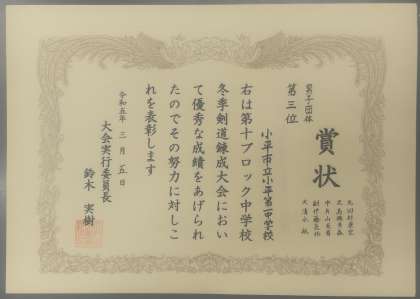 賞状
男子団体
第三位
小平市立小平第一中学校
右は第十ブロック中学校
冬季剣道錬成大会におい
て優秀な成績をあげられ
たのでその努力に対しこ
れを表彰します
令和五年 三月 五日
大会実行委員長
鈴木 実樹